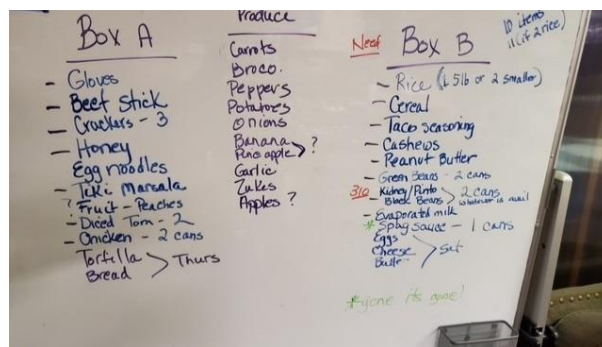 Box A
- Gloves
- Beef Stick
- Crackers - 3
- Honey
Egg noodles
- Tiki Marsala
? Fruit - Peaches
- Diced Tom - 2
- Chicken - 2 cans
Tortilla
Bread > Thurs
Produce
Carrots
Broco.
Peppers
Potatoes
Onions
Banana
Pineapple > ?
Garlic
Zukes
Apples ?
10 items
11 (if 2 rice)
Need Box B
- Rice (1 5lb or 2 smaller)
- Cereal
- Taco Seasoning
- Cashews
- Peanut Butter
- Green Beans - 2 cans
310 - Kidney/Pinto
Black Beans > 2 cans
whatever is avail
- Evaporated milk
* Spag sauce - 1 cans
Eggs
Cheese > Sat
Butter
gone its gone!